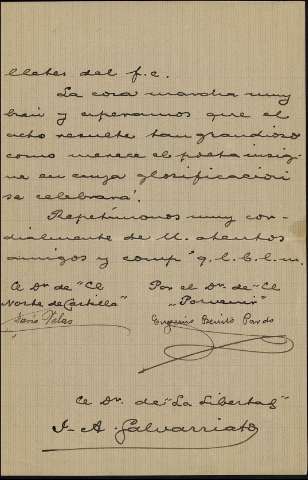 lletes del f. c.
La cosa marcha muy
bien y esperamos que el
acto resulte tan grandioso
como merece el poeta insig-
ne en cuya glorificación
se celebrará.
Repetímonos muy cor-
dialmente de U. atentos
amigos y comp.s q. l. b. l. m.
El Dr. de "El Por el Dr. de "El
Norte de Castilla" Porvenir"
Pardo
El Dr. de "La Libertad"
J. A. Galvarriato